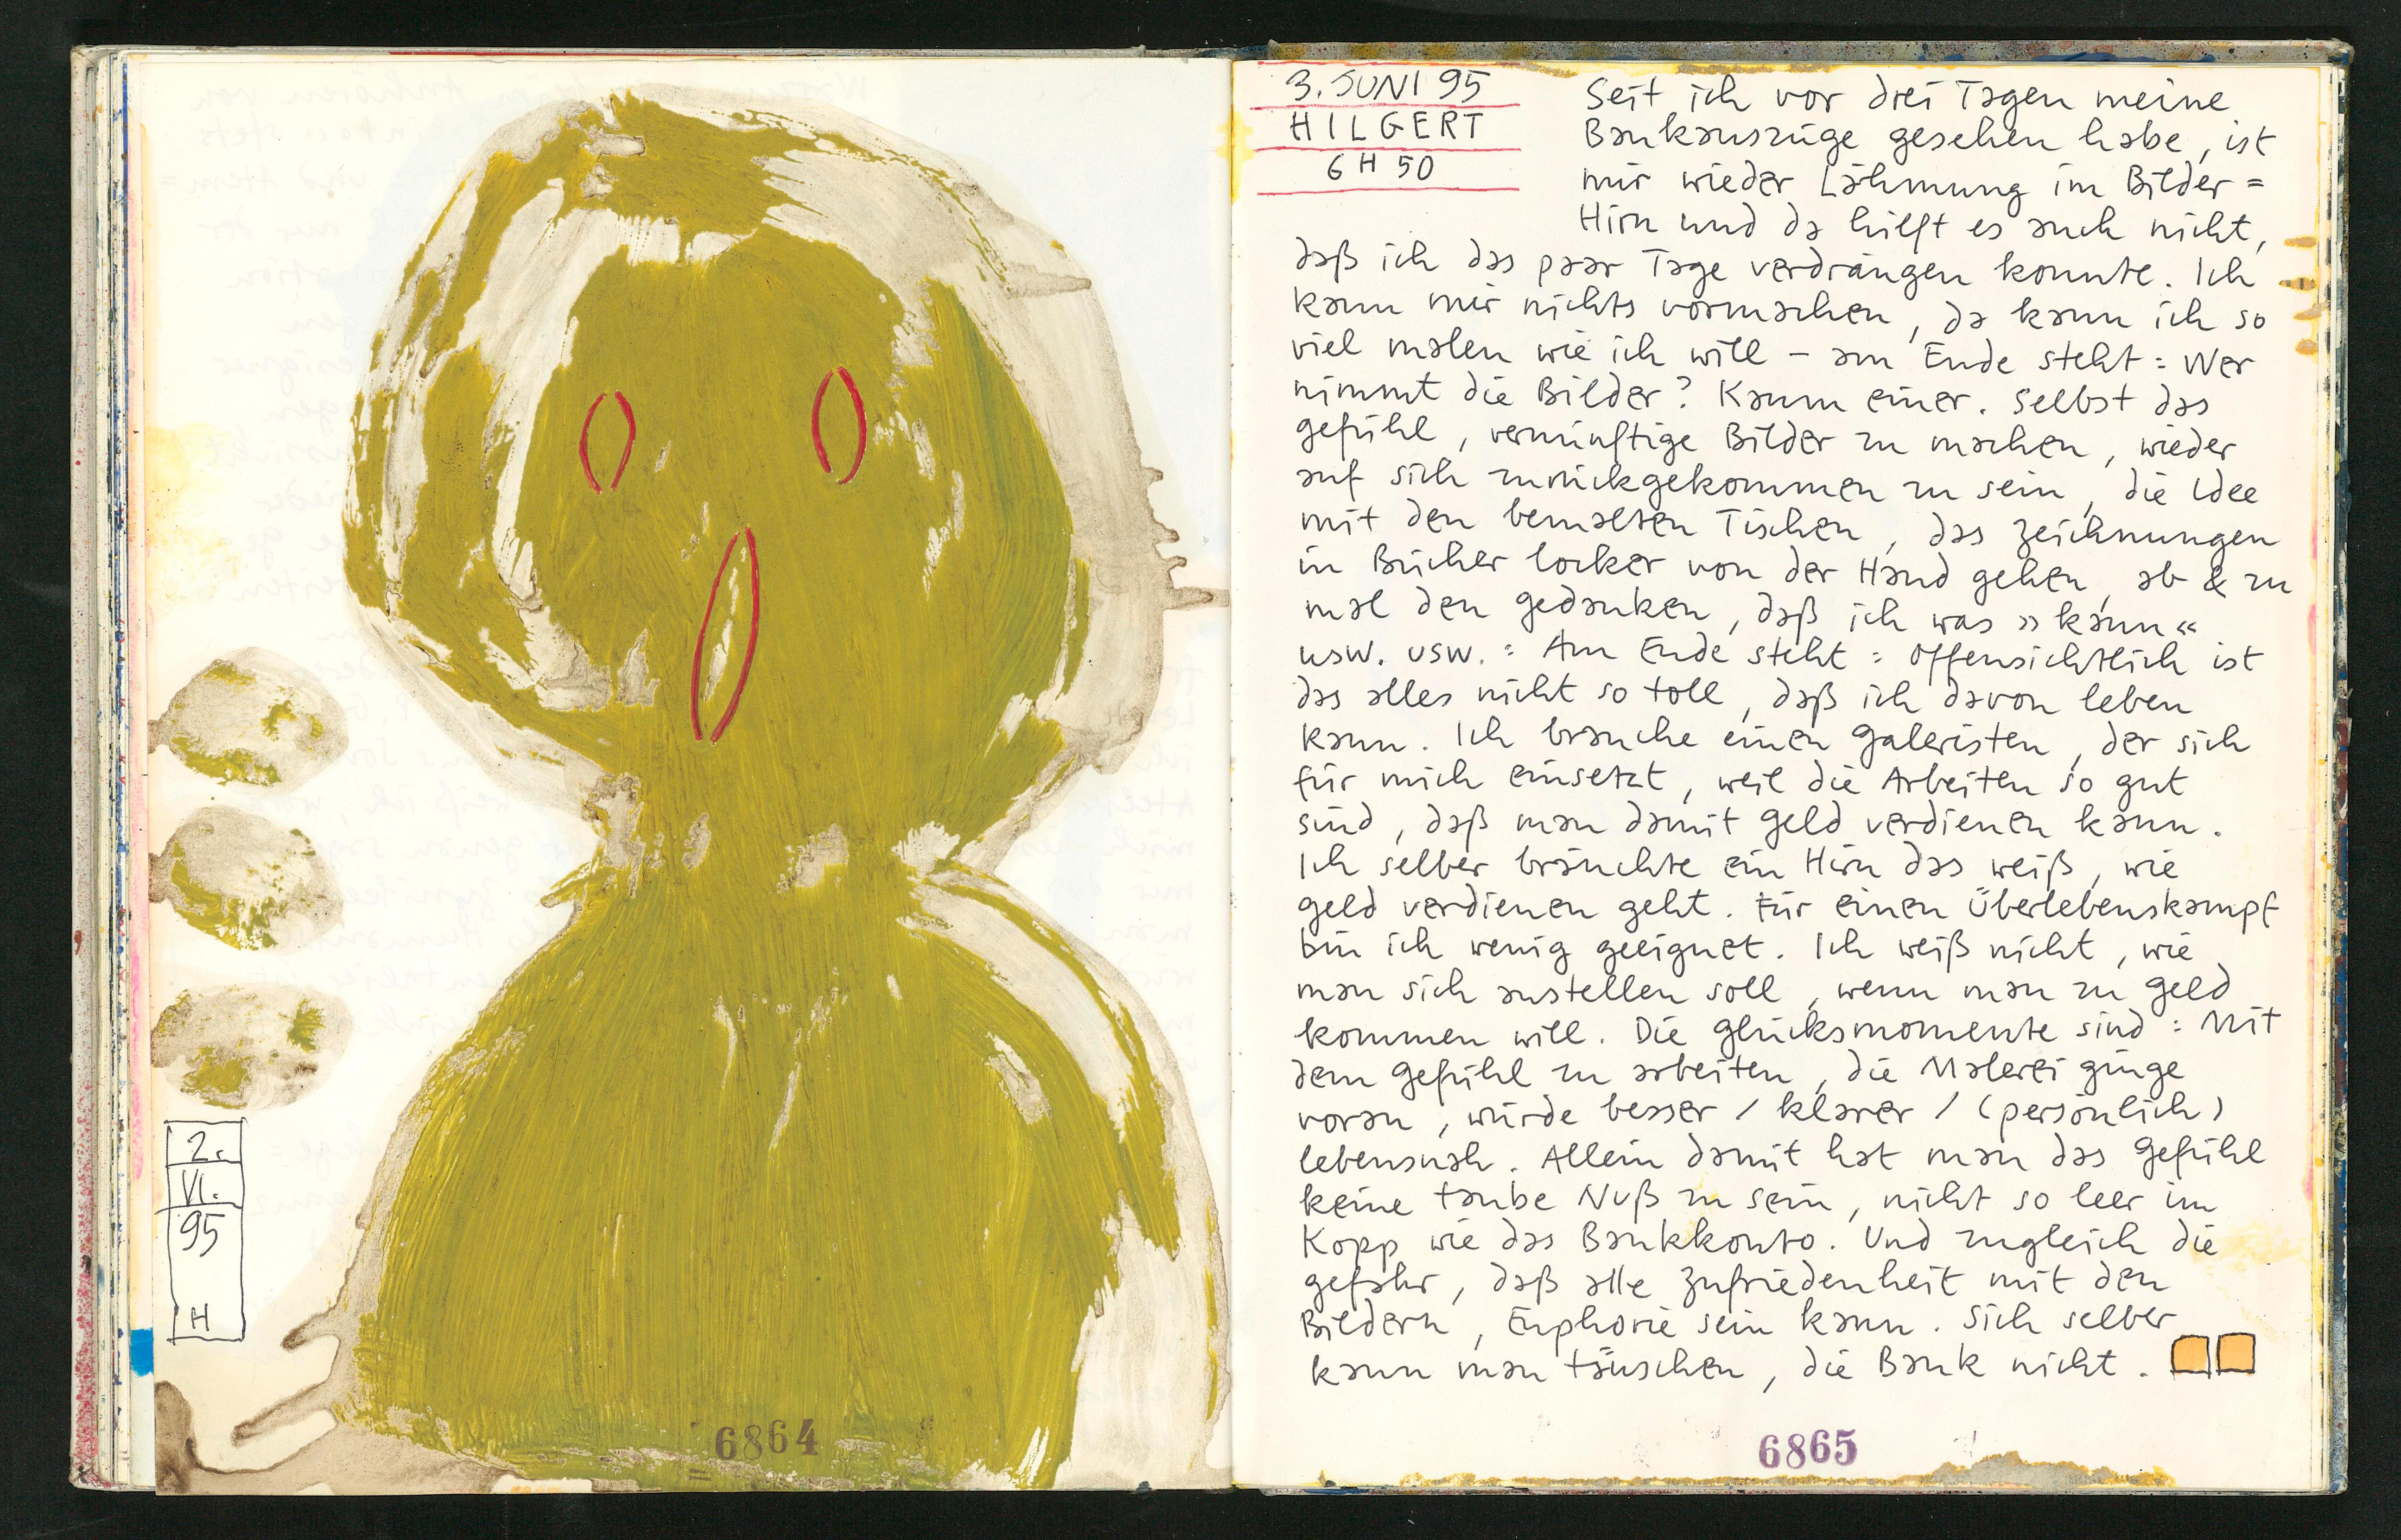 2.
VI.
95
H
6864
3. JUNI 95
HILGERT
6 H 50
Seit ich vor drei Tagen meine
Bankauszüge gesehen habe, ist
mir wieder Lähmung im Bilder=
Hirn und da hilft es auch nicht,
daß ich das paar Tage verdrängen konnte. Ich
kann mir nichts vormachen, da kann ich so
viel malen wie ich will – am Ende steht: Wer
nimmt die Bilder? Kaum einer. Selbst das
gefühl, vernünftige Bilder zu machen, wieder
auf sich zurückgekommen zu sein, die Idee
mit den bemalten Tischen, das Zeichnungen
in Bücher locker von der Hand gehen, ab & zu
mal den gedanken, daß ich was »kann«
usw. usw.: Am Ende steht: Offensichtlich ist
das alles nicht so toll, daß ich davon leben
kann. Ich brauche einen galeristen, der sich
für mich einsetzt, weil die Arbeiten so gut
sind, daß man damit geld verdienen kann.
Ich selber bräuchte ein Hirn das weiß, wie
geld verdienen geht. Für einen Überlebenskampf
bin ich wenig geeignet. Ich weiß nicht, wie
man sich anstellen soll, wenn man zu geld
kommen will. Die glücksmomente sind: Mit
dem gefühl zu arbeiten, die Malerei ginge
voran, würde besser / klarer / (persönlich)
lebensnah. Allein damit hat man das gefühl
keine taube Nuß zu sein, nicht so leer im
Kopp wie das Bankkonto. Und zugleich die
gefahr, daß alle Zufriedenheit mit den
Bildern, Euphorie sein kann. Sich selber
kann man täuschen, die Bank nicht.
6865